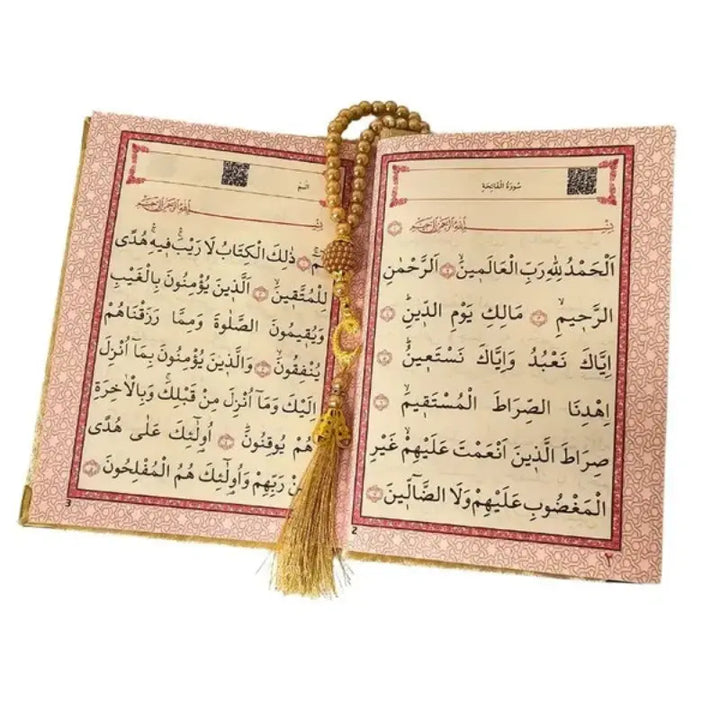 سُورَةُ الْفَاتِحَةِ
بِسْــــمِ اللّٰهِ الرَّحْمٰنِ الرَّحٖيمِ
اَلْحَمْدُ لِلّٰهِ رَبِّ الْعَالَمٖينَۙ اَلرَّحْمٰنِ
الرَّحٖيمِۙ مَالِكِ يَوْمِ الدّٖينِؕ
اِيَّاكَ نَعْبُدُ وَاِيَّاكَ نَسْتَعٖينُؕ
اِهْدِنَا الصِّرَاطَ الْمُسْتَقٖيمَۙ
صِرَاطَ الَّذٖينَ اَنْعَمْتَ عَلَيْهِمْۙ غَيْرِ
الْمَغْضُوبِ عَلَيْهِمْ وَلَا الضَّٓالّٖينَ
2
٢
بِسْــــمِ اللّٰهِ الرَّحْمٰنِ الرَّحٖيمِ
ذٰلِكَ الْكِتَابُ لَا رَيْبَۚ فٖيهِۚ هُدًى
لِلْمُتَّقٖينَۙ اَلَّذٖينَ يُؤْمِنُونَ بِالْغَيْبِ
وَيُقٖيمُونَ الصَّلٰوةَ وَمِمَّا رَزَقْنَاهُمْ
يُنْفِقُونَۙ وَالَّذٖينَ يُؤْمِنُونَ بِمَٓا اُنْزِلَ
اِلَيْكَ وَمَٓا اُنْزِلَ مِنْ قَبْلِكَۚ وَبِالْاٰخِرَةِ
هُمْ يُوقِنُونَؕ اُو۬لٰٓئِكَ عَلٰى هُدًى
رَبِّهِمْ وَاُو۬لٰٓئِكَ هُمُ الْمُفْلِحُونَ
3